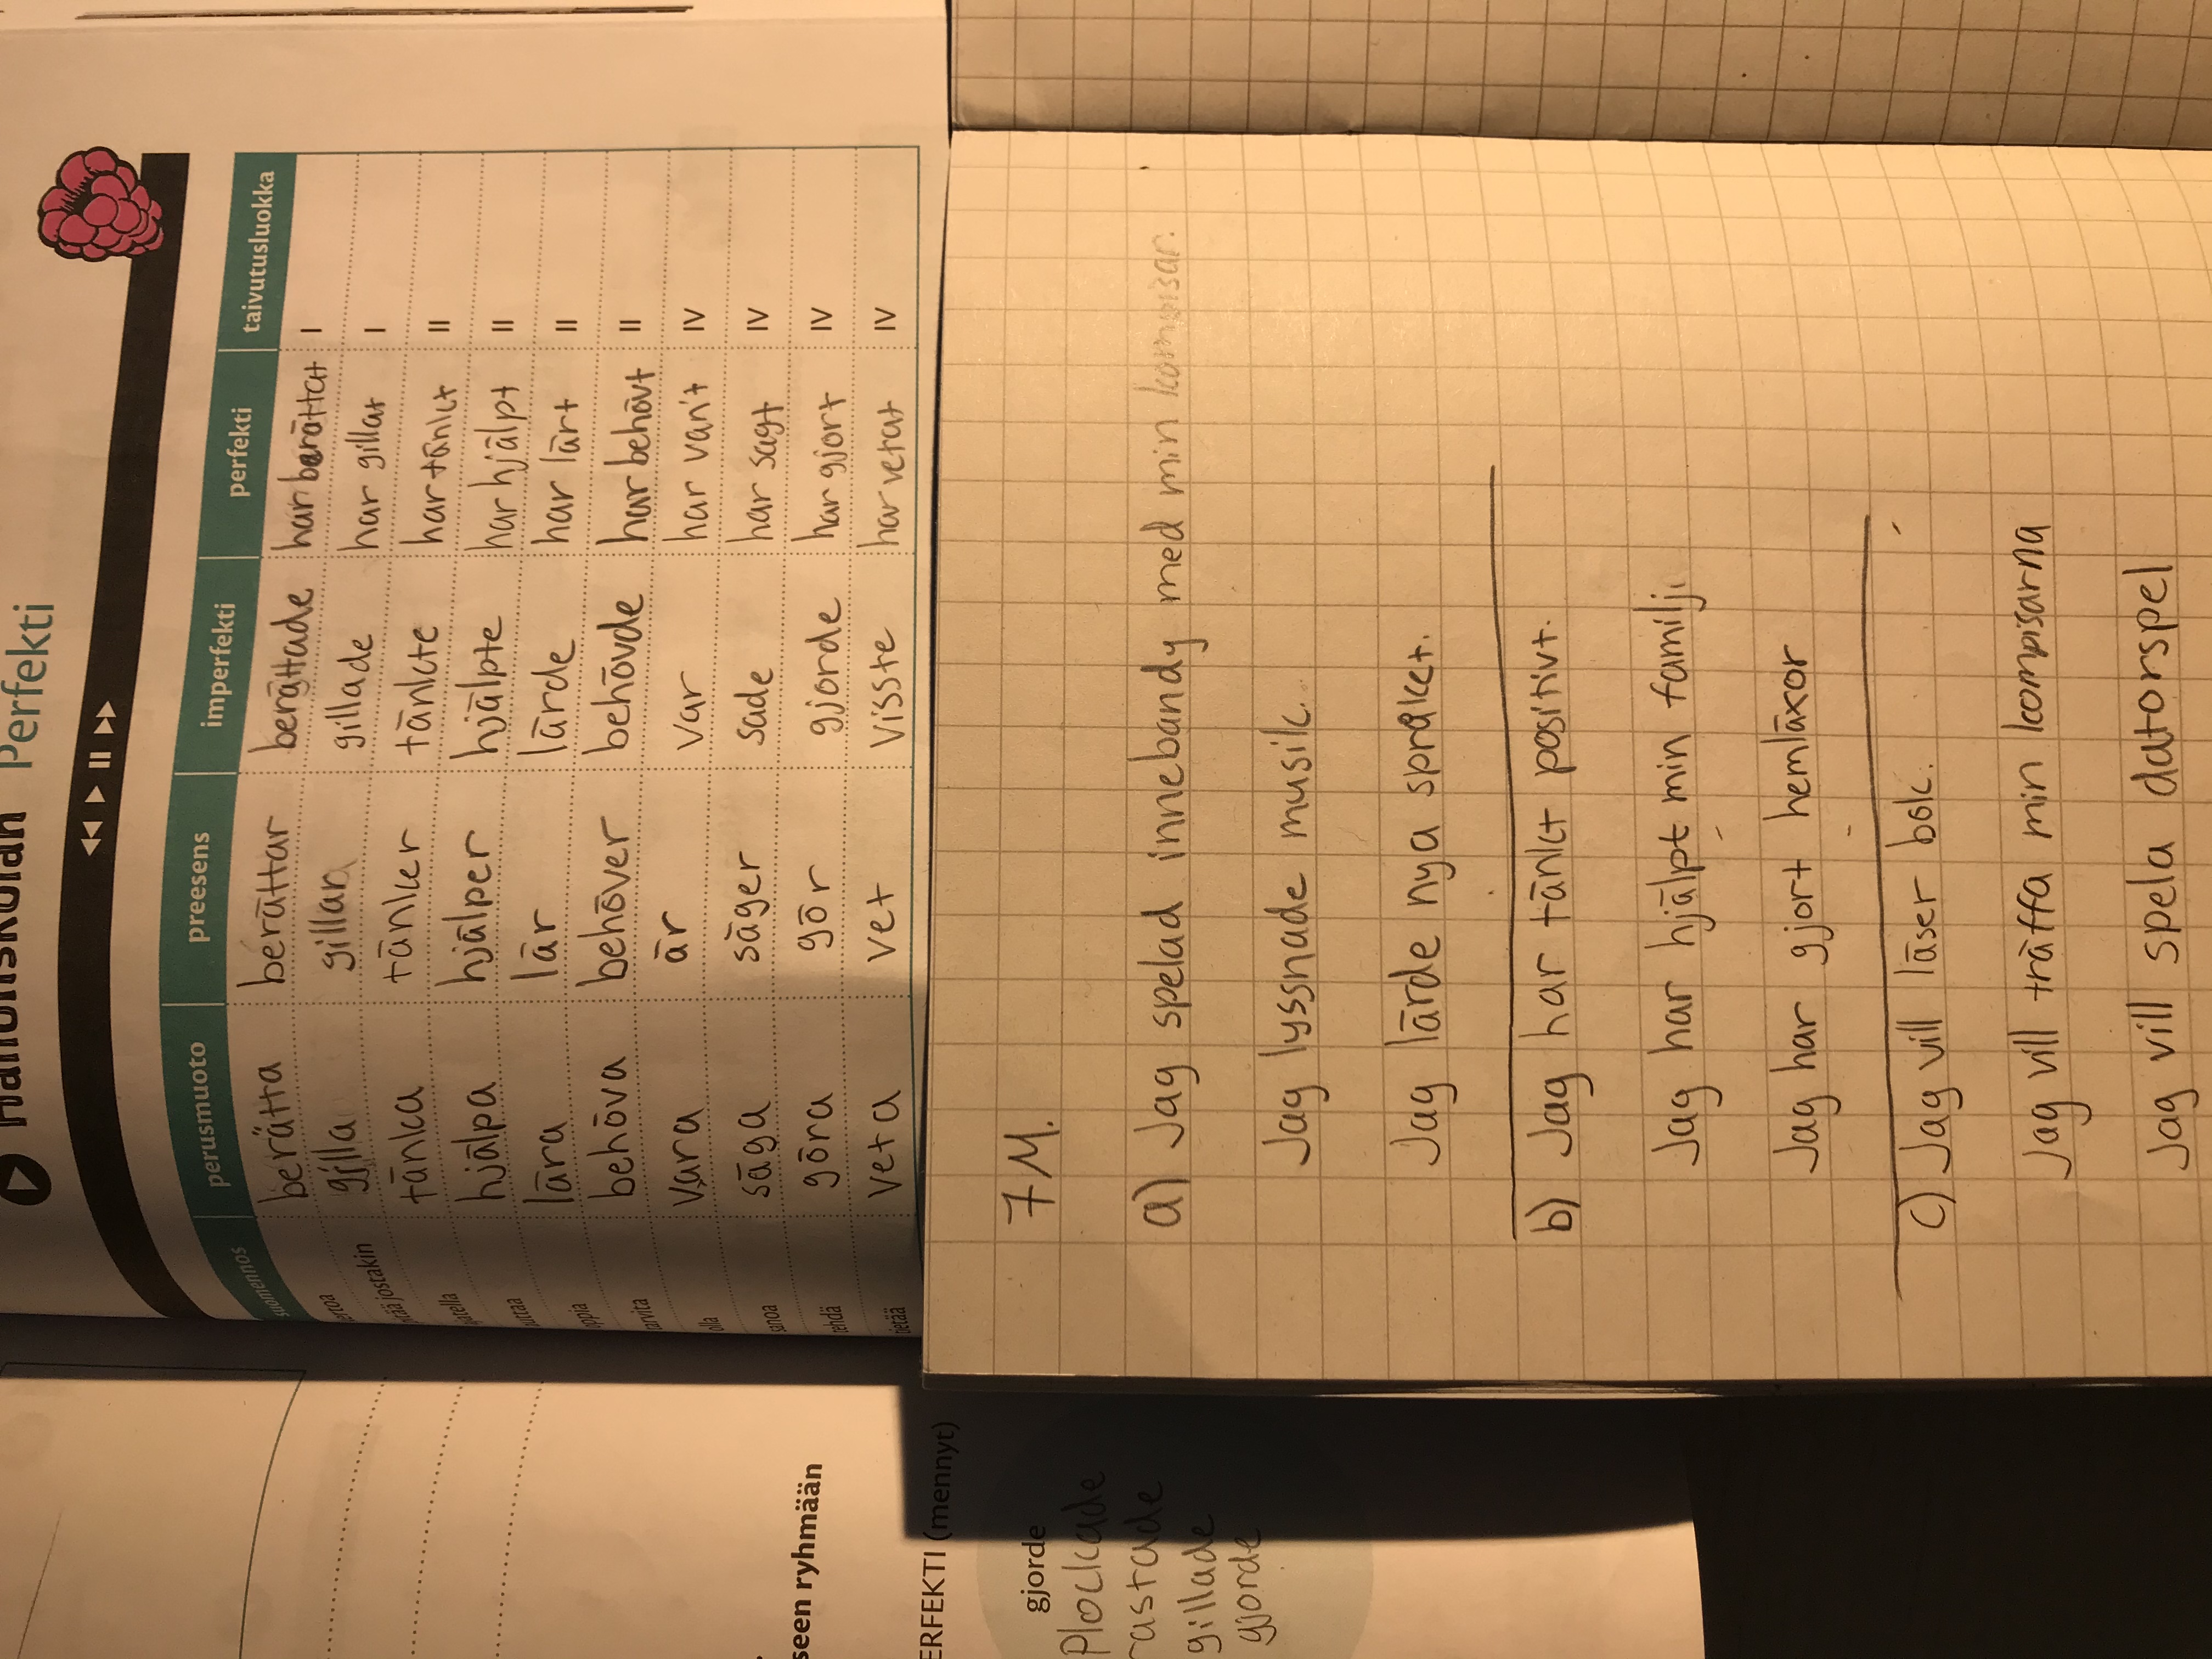 Perfekti
perusmuoto preesens imperfekti perfekti taivutusluokka
berätta berättar berättade har berättat I
jostakin gilla gillar gillade har gillat I
tänka tänker tänkte har tänkt II
hjälpa hjälper hjälpte har hjälpt II
lära lär lärde har lärt II
behöva behöver behövde har behövt II
olla vara är var har varit IV
sanoa säga säger sade har sagt IV
tehdä göra gör gjorde har gjort IV
tietää veta vet visste har vetat IV
7 M.
a) Jag spelad innebandy med min kompisar.
Jag lyssnade musik.
Jag lärde nya språket.
b) Jag har tänkt positivt.
Jag har hjälpt min familj.
Jag har gjort hemläxor
c) Jag vill läser bok.
Jag vill träffa min kompisarna
Jag vill spela datorspel
seen ryhmään
ERFEKTI (mennyt)
gjorde
Plockade
rastade
gillade
gjorde